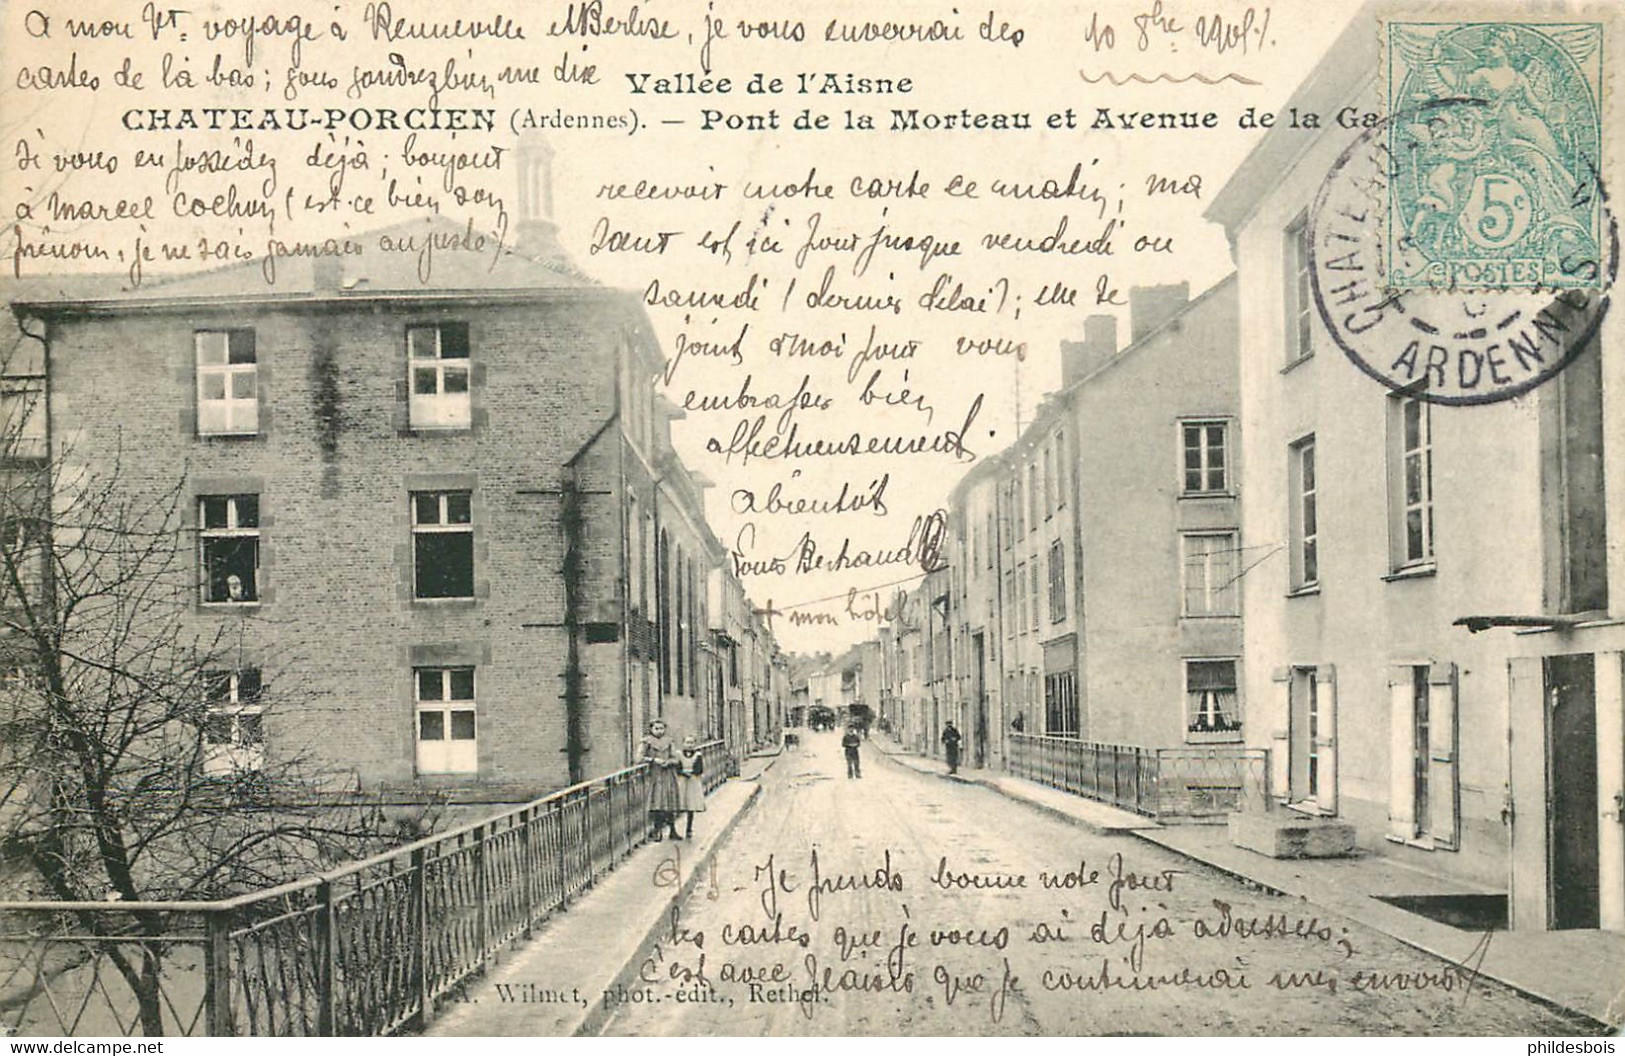 A mon Vt. voyage à Renneville et Berlise, je vous enverrai des
10 8bre 1905.
cartes de là bas; vous voudrez bien me dire
Vallée de l'Aisne
CHATEAU-PORCIEN (Ardennes). — Pont de la Morteau et Avenue de la Ga
si vous en possédez déjà; bonjour
à Marcel Cochon (est-ce bien son
prénom, je ne sais jamais au juste?)
recevoir notre carte ce matin; ma
sœur est ici pour jusque vendredi ou
samedi (dernier délai); elle se
joint à moi pour vous
embrasser bien
affectueusement.
A bientôt
Louis Bertrand
+ mon hôtel
5c
POSTES
CHATEAU-
ARDENNES
- Je prends bonne note pour
les cartes que je vous ai déjà adressées;
c'est avec plaisir que je continuerai mes envois
A. Wilmet, phot.-édit., Rethel.
www.delcampe.net
phildesbois